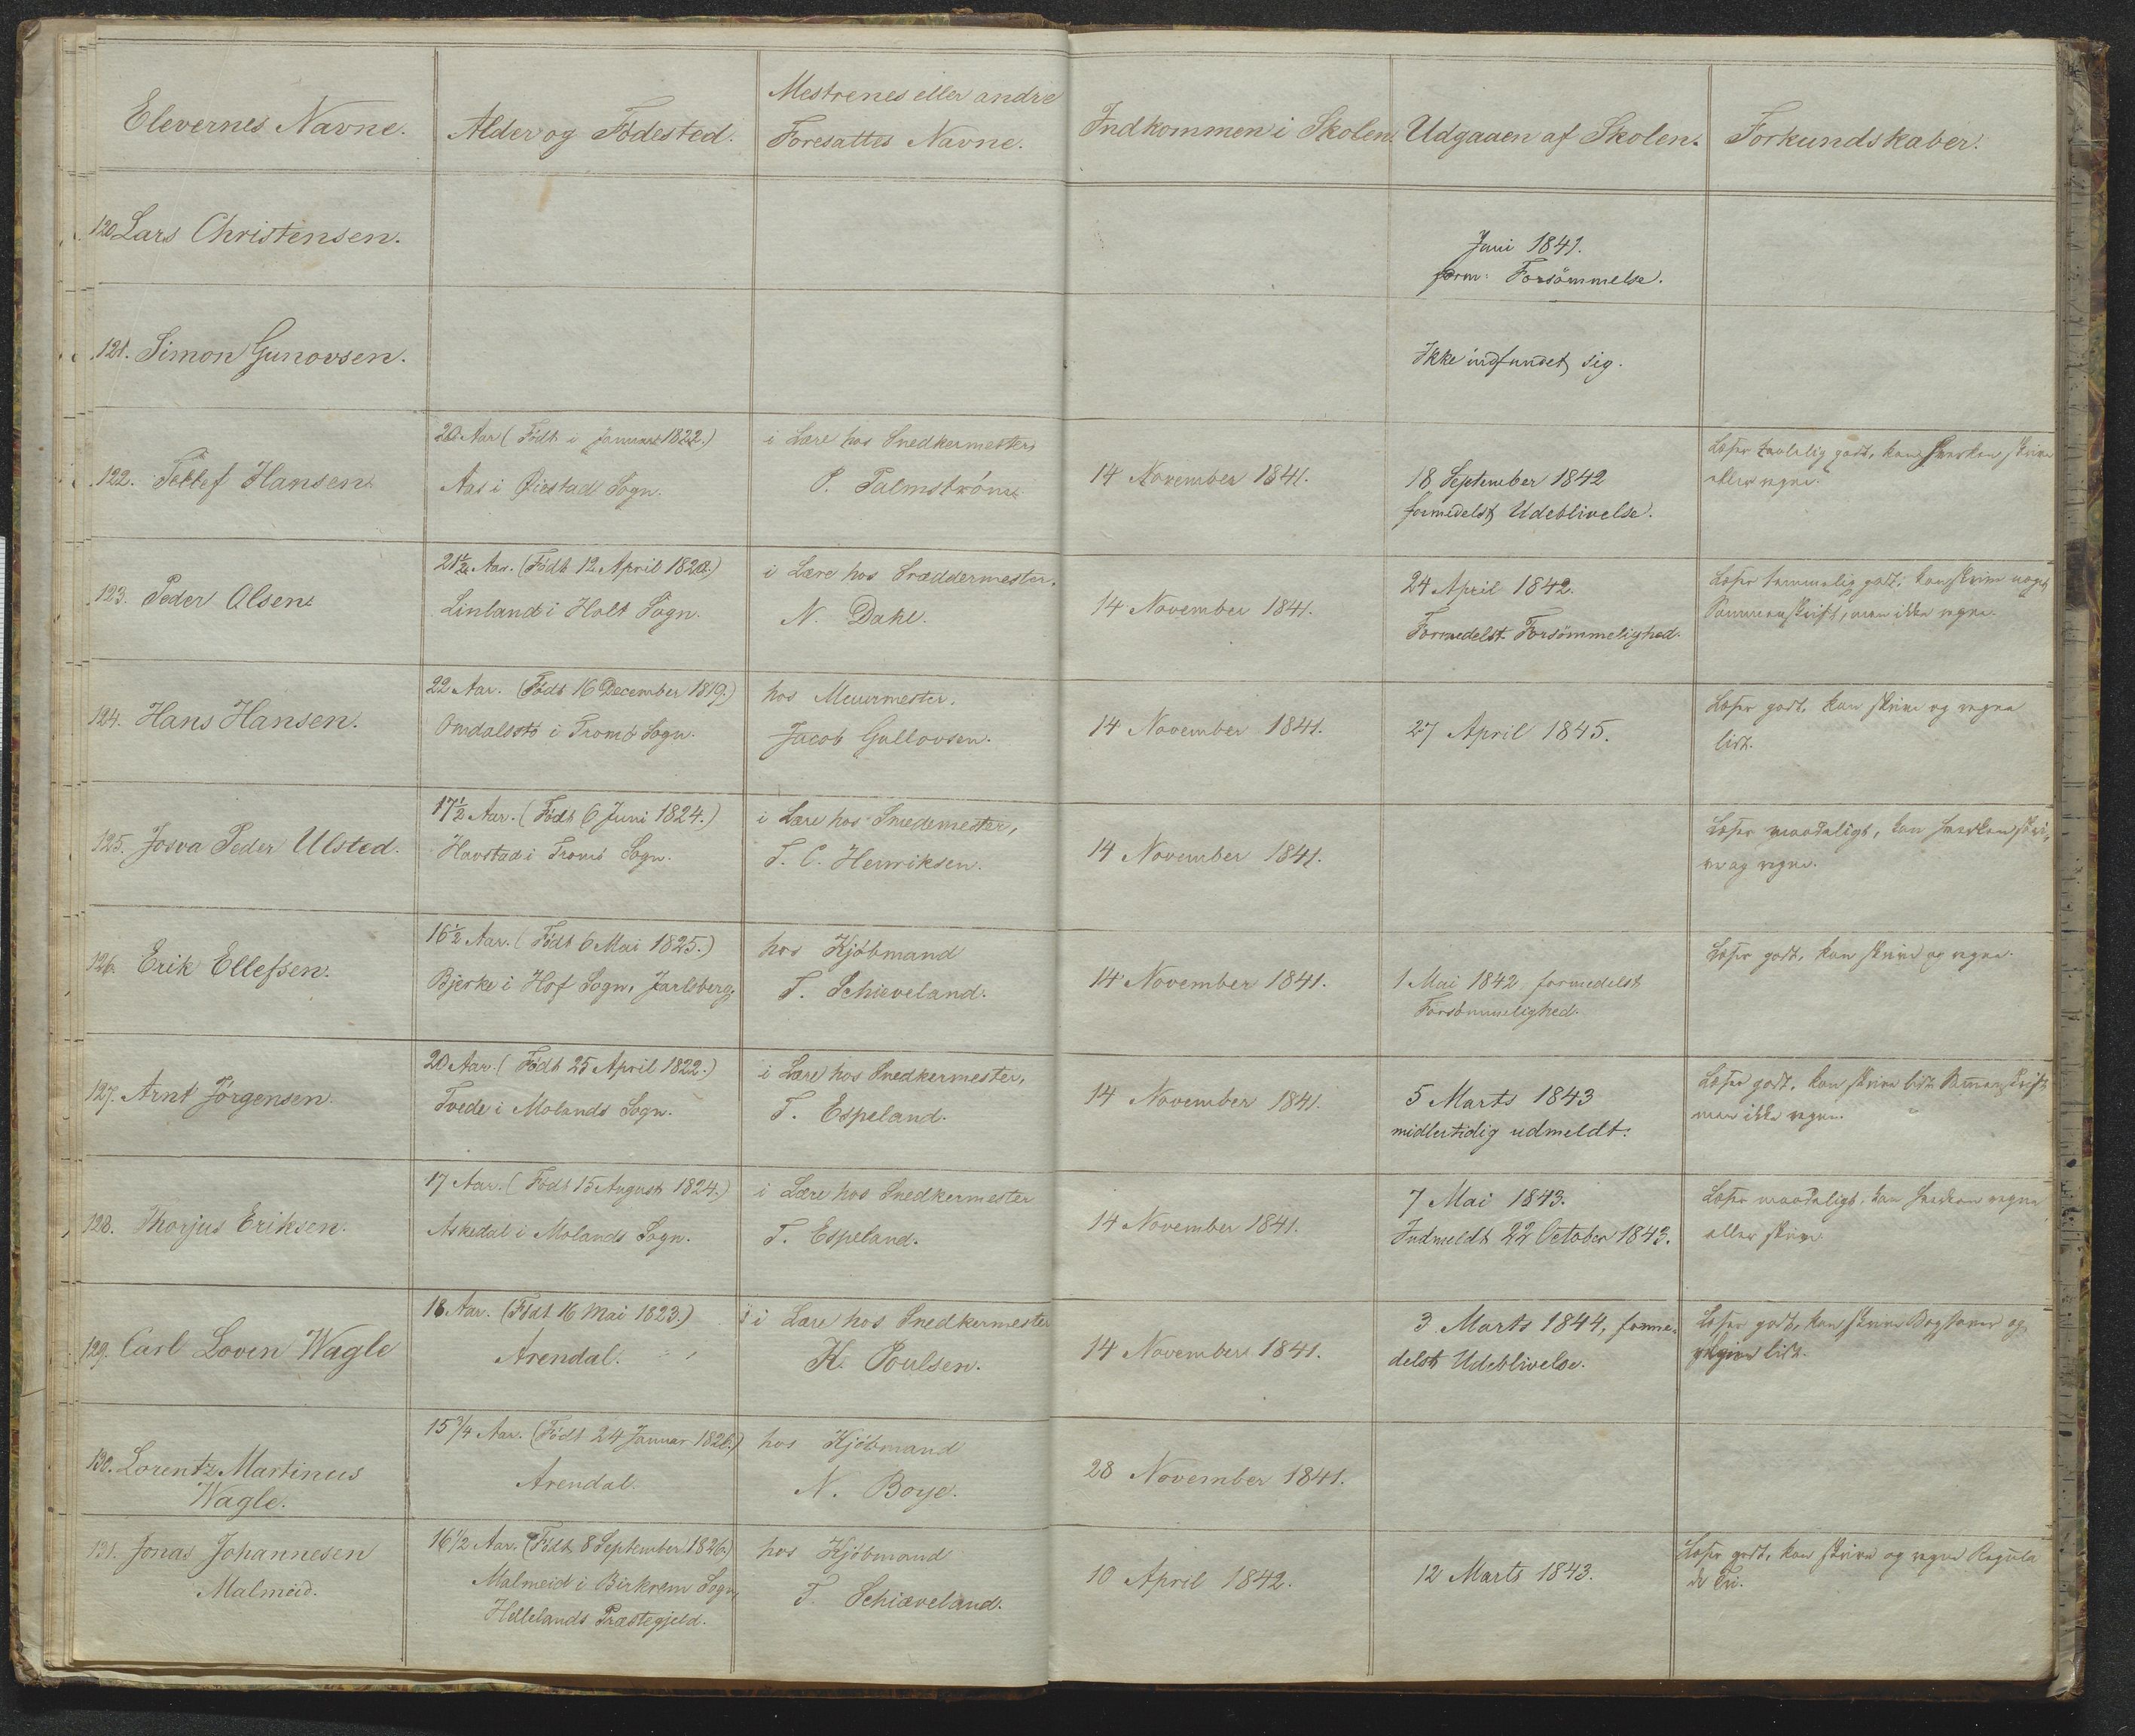 Elevernes Navne.
Alder og Födested.
Mestrenes eller andre
Foresattes Navne.
Indkommen i Skolen.
Udgaaen af Skolen.
Forkundskaber.
120. Lars Christensen.
Juni 1841.
form: Forsömmelse.
121. Simon Gunovsen.
Ikke indfundet sig.
122. Tellef Hansen.
20 Aar (Födt i Januar 1822.)
Aas i Øiestad Sogn.
i Lære hos Snedkermester
P. Palmström.
14 November 1841.
18 September 1842
formedelst Udeblivelse.
Læser taalelig godt, kan hverken skrive
eller regne.
123. Peder Olsen.
21½ Aar. (Födt 12 April 1820.)
Linland i Holt Sogn.
i Lære hos Skræddermester,
N. Dahl.
14 November 1841.
24 April 1842.
Formedelst Forsömmelighed.
Læser temmelig godt; kan skrive noget
Sammenskrift, men ikke regne.
124. Hans Hansen.
22 Aar. (Födt 16 December 1819.)
Omdalsstö i Tromö Sogn.
hos Muurmester,
Jacob Gullovsen.
14 November 1841.
27 April 1845.
Læser godt, kan skrive og regne
lidt.
125. Josva Peder Ulsted.
17½ Aar. (Födt 6 Juni 1824.)
Havstad i Tromö Sogn.
i Lære hos Smedemester,
T. C. Henriksen.
14 November 1841.
Læser maadeligt, kan hverken skri-
ve og regne.
126. Erik Ellefsen.
16½ Aar. (Födt 6 Mai 1825.)
Bjerke i Hof Sogn, Jarlsberg.
hos Kjöbmand
T. Schieveland.
14 November 1841.
1 Mai 1842, formedelst
Forsömmelighed.
Læser godt, kan skrive og regne.
127. Arnt Jörgensen.
20 Aar. (Födt 25 April 1822.)
Tvede i Molands Sogn.
i Lære hos Snedkermester,
T. Espeland.
14 November 1841.
5 Marts 1843
midlertidig udmeldt.
Læser godt, kan skrive lidt Sammenskrift
men ikke regne.
128. Thorjus Eriksen.
17 Aar. (Födt 15 August 1824.)
Askedal i Molands Sogn.
i Lære hos Snedkermester
T. Espeland.
14 November 1841.
7 Mai 1843.
Indmeldt 22 October 1843.
Læser maadeligt, kan hverken regne
eller skrive.
129. Carl Loven Wagle
18 Aar. (Födt 16 Mai 1823.)
Arendal.
i Lære hos Snedkermester
K. Poulsen.
14 November 1841.
3 Marts 1844, forme-
delst Udeblivelse.
Læser godt, kan skrive Bogstaver og
regne lidt.
130. Lorentz Martinus
Wagle.
15 3/4 Aar. (Födt 24 Januar 1826.)
Arendal.
hos Kjöbmand
N. Boye.
28 November 1841.
131. Jonas Johannesen
Malmeid.
16½ Aar. (Födt 8 September 1826.)
Malmeid i Birkrem Sogn,
Hellelands Præstegjeld.
hos Kjöbmand
T. Schiæveland.
10 April 1842.
12 Marts 1843.
Læser godt, kan skrive og regne Regula
de Tri.